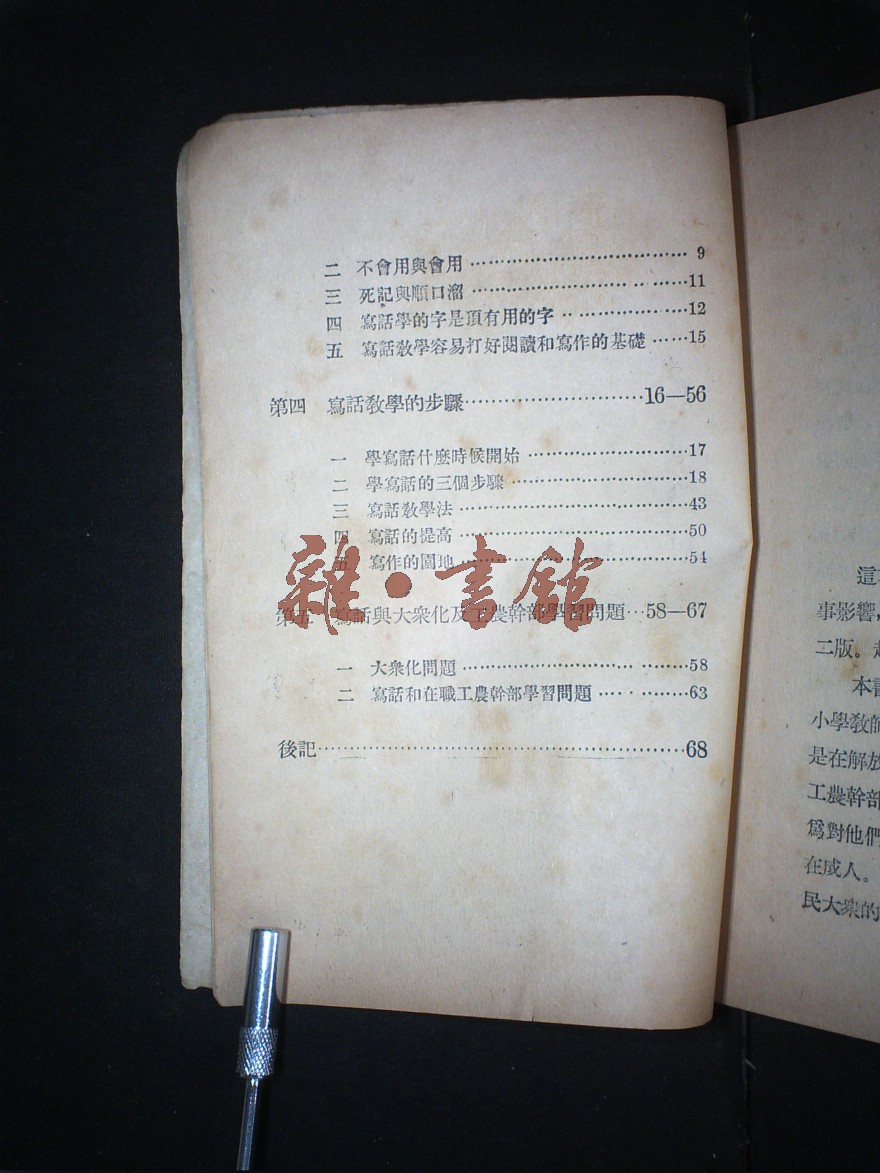 二 不會用與會用………………………………9
三 死記與順口溜………………………………11
四 寫話學的字是頂有用的字………………12
五 寫話敎學容易打好閱讀和寫作的基礎……15
第四 寫話敎學的步驟………………………16—56
一 學寫話什麽時候開始……………………17
二 學寫話的三個步驟………………………18
三 寫話敎學法………………………………43
四 寫話的提高………………………………50
五 寫作的園地………………………………54
第五 寫話與大衆化及工農幹部學習問題…58—67
一 大衆化問題………………………………58
二 寫話和在職工農幹部學習問題…………63
後記……………………………………………68
雜·書館
這
事影響,
二版。
本書
小學敎師
是在解放
工農幹部
爲對他們
在成人。
民大衆的